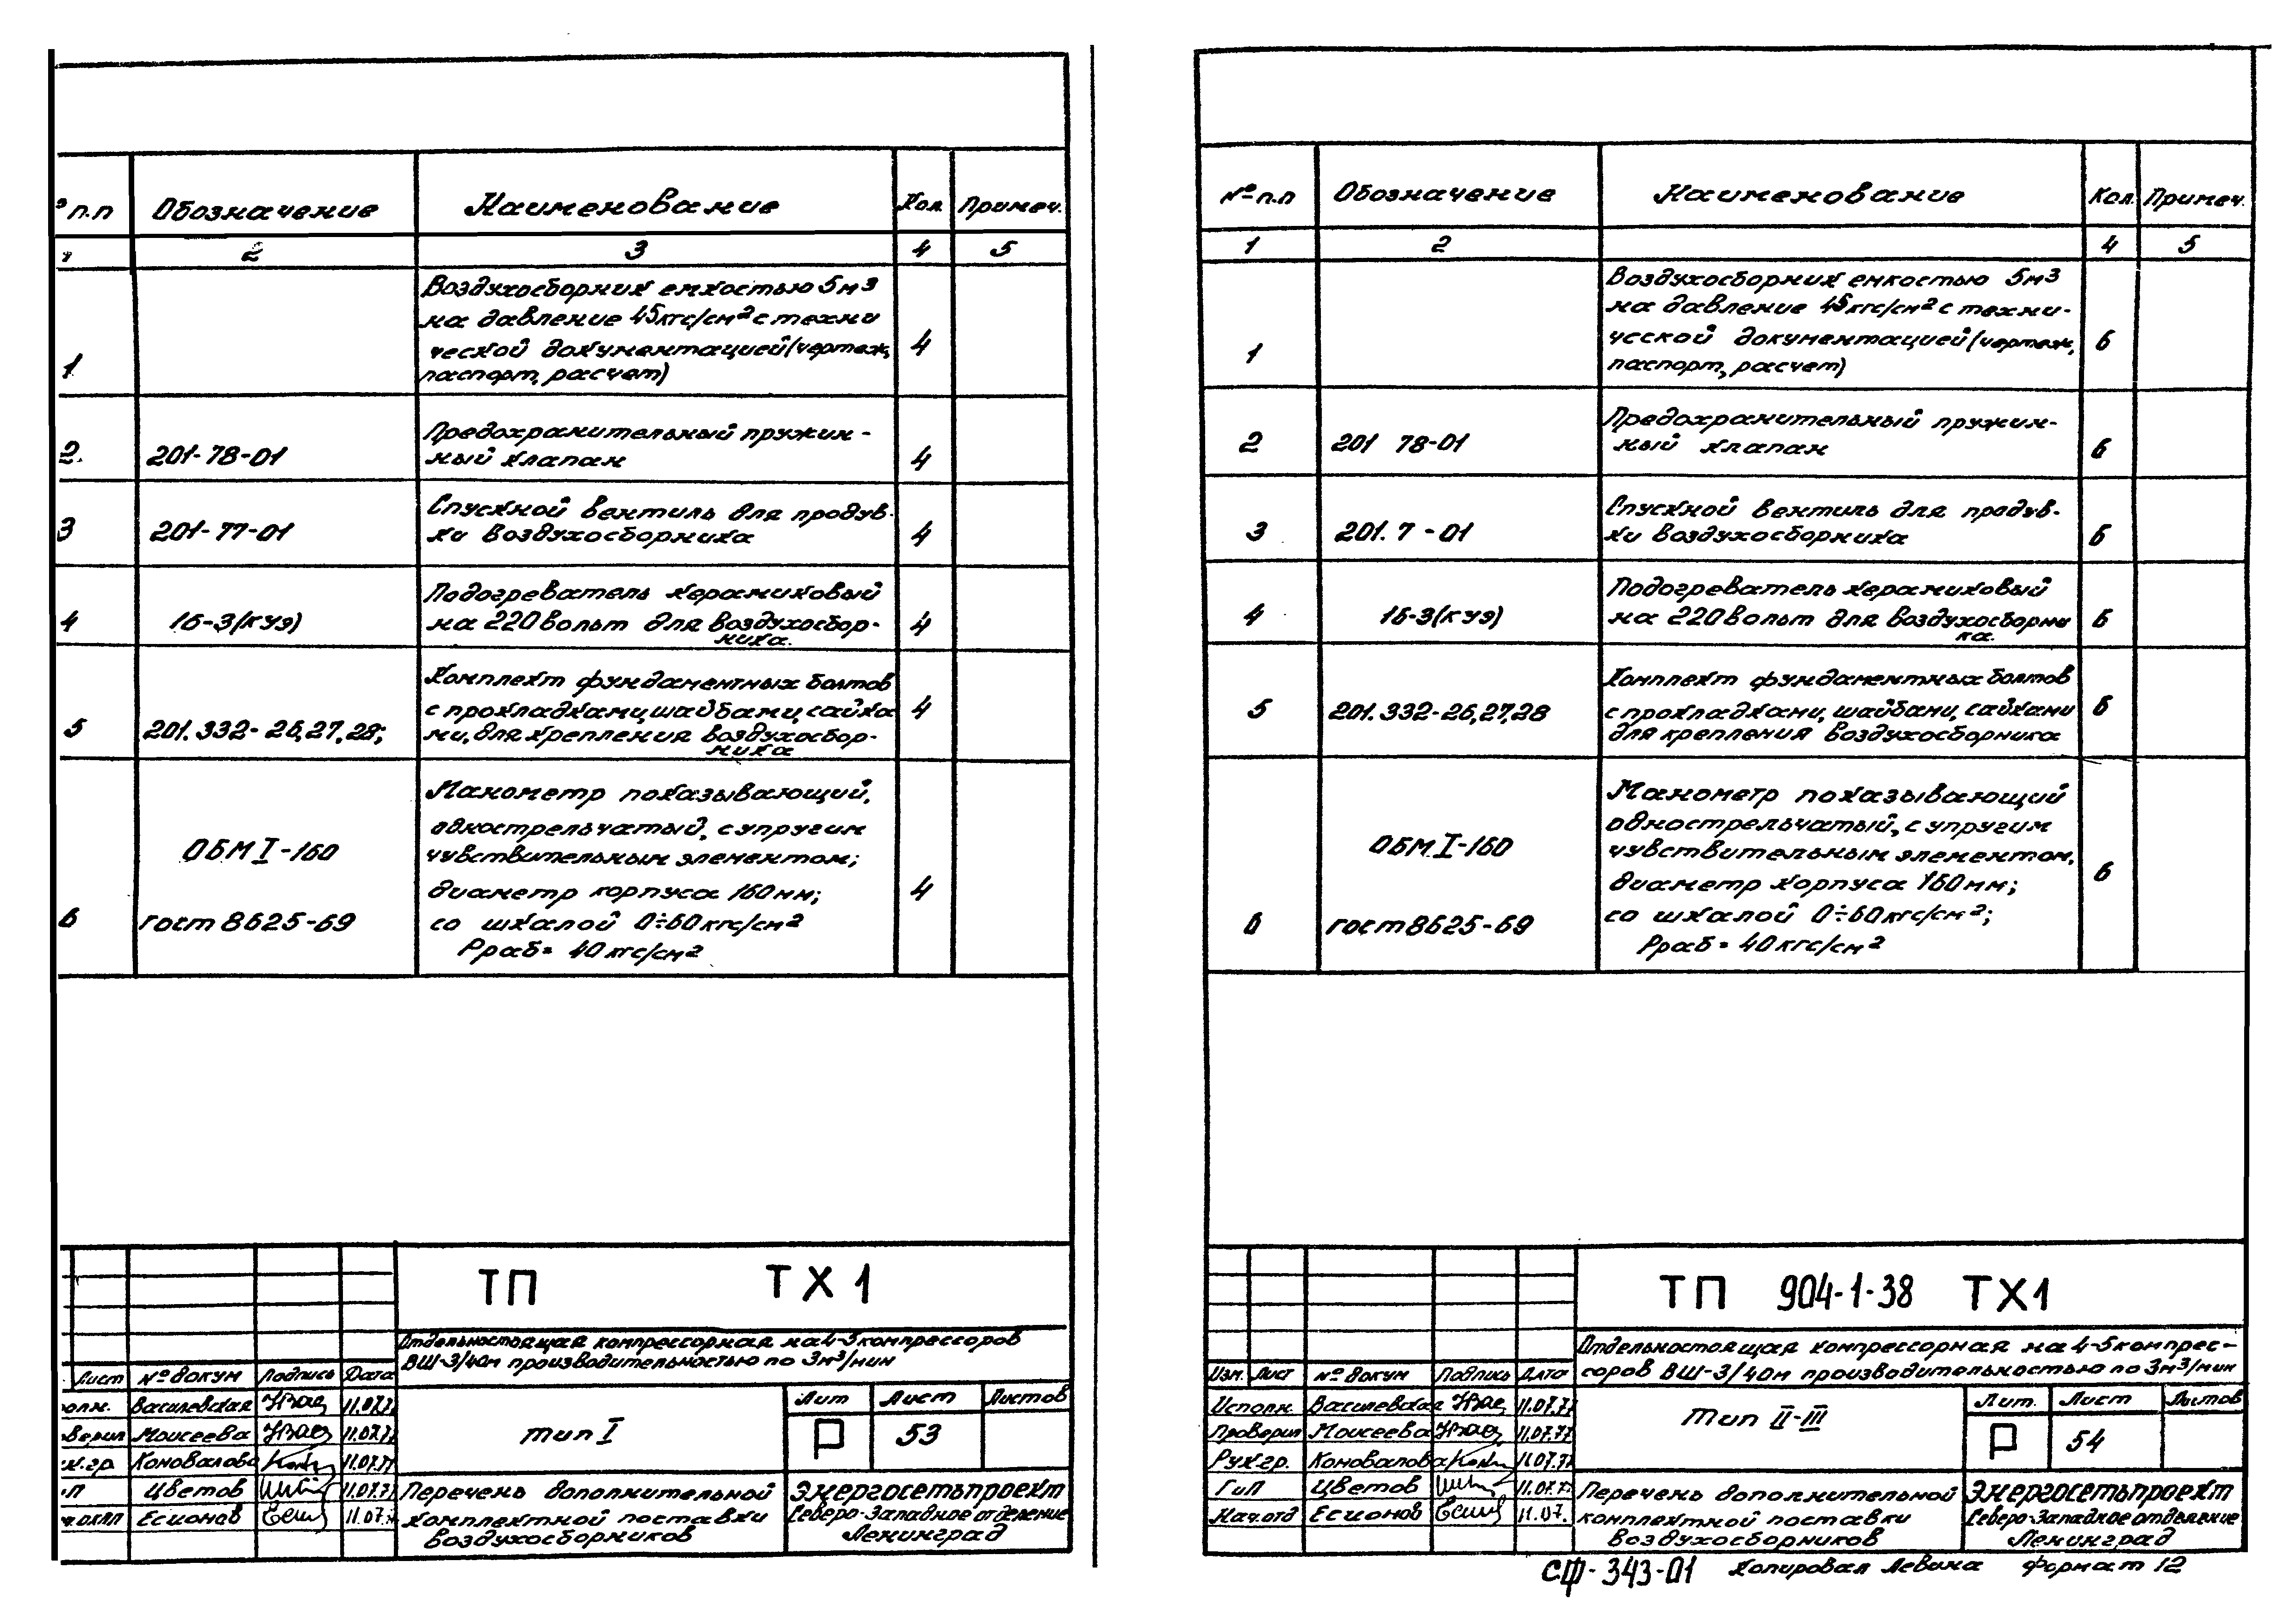 № п.п Обозначение Наименование Кол. Примеч.
2 3 4 5
1 Воздухосборник емкостью 5м³
на давление 45кгс/см² с техни
ческой документацией (чертеж,
паспорт, расчет) 4
2. 201-78-01 Предохранительный пружин-
ный клапан 4
3 201-77-01 Спускной вентиль для продув-
ки воздухосборника 4
4 16-3(КУЭ) Подогреватель керамиковый
на 220 вольт для воздухосбор-
ника. 4
5 201.332-26,27,28; Комплект фундаментных болтов
с прокладками, шайбами, гайка
ми, для крепления воздухосбор-
ника 4
6 ОБМ I-160 Манометр показывающий,
однострельчатый, с упругим
чувствительным элементом;
диаметр корпуса 160мм; 4
гост 8625-69 со шкалой 0÷60кгс/см²
Рраб= 40 кгс/см²
ТП ТХ1
Отдельностоящая компрессорная на 4-5 компрессоров
ВШ-3/40м производительностью по 3м³/мин
Лист № докум Подпись Дата
полн. Василевская 11.07.77
верил Моисеева 11.07.77
к.гр Коновалова 11.07.77
.П Цветов 11.07.77
Есионов 11.07.
тип I
Лит Лист Листов
Р 53
Перечень дополнительной
комплектной поставки
воздухосборников
Энергосетьпроект
Северо-Западное отделение
Ленинград
№ п.п Обозначение Наименование Кол. Примеч.
1 2 4 5
1 Воздухосборник емкостью 5м³
на давление 45кгс/см² с техни-
ческой документацией (чертеж,
паспорт, расчет) 6
2 201 78-01 Предохранительный пружин-
ный клапан 6
3 201.7 -01 Спускной вентиль для продув-
ки воздухосборника 6
4 16-3(КУЭ) Подогреватель керамиковый
на 220 вольт для воздухосборни
ка. 6
5 201.332-26,27,28 Комплект фундаментных болтов
с прокладками, шайбами, гайками
для крепления воздухосборника 6
6 ОБМ I-160 Манометр показывающий
однострельчатый, с упругим
чувствительным элементом,
диаметр корпуса 160мм; 6
гост 8625-69 со шкалой 0÷60кгс/см²;
Рраб = 40 кгс/см²
ТП 904-1-38 ТХ1
Отдельностоящая компрессорная на 4-5 компрес-
соров ВШ-3/40м производительностью по 3м³/мин
Изм. Лист № докум Подпись Дата
Исполн. Василевская 11.07.77
Проверил Моисеева 11.07.77
Рук.гр. Коновалова 11.07.77
ГиП Цветов 11.07.77
Нач.отд Есионов 11.07.
Тип II-III
Лит. Лист Листов
Р 54
Перечень дополнительной
комплектной поставки
воздухосборников
Энергосетьпроект
Северо-Западное отделение
Ленинград
СФ-343-01 Копировал Левина формат 12